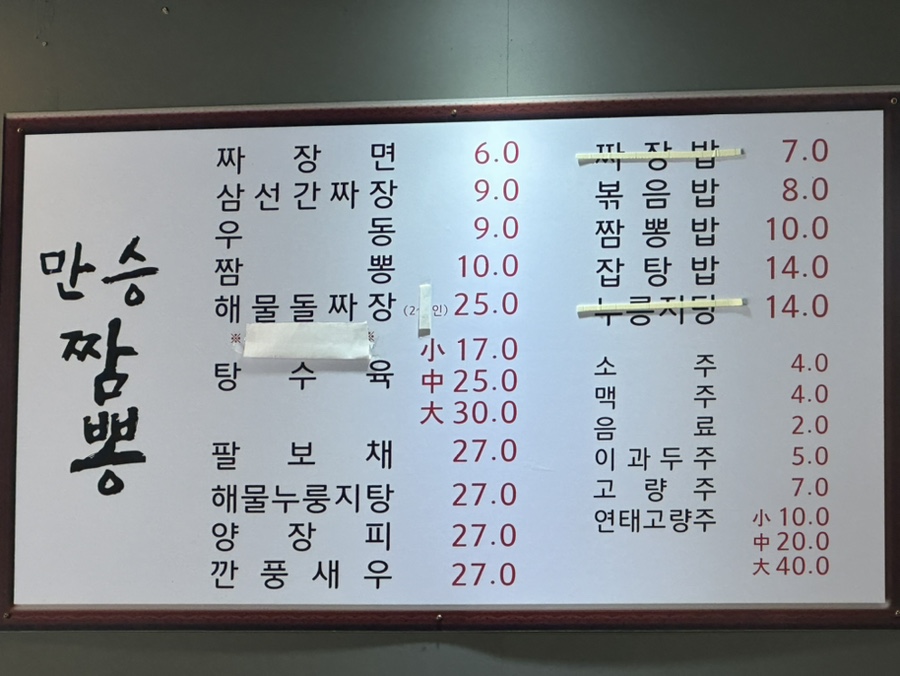 만승
짬
뽕
짜장면 6.0
삼선간짜장 9.0
우동 9.0
짬뽕 10.0
해물돌짜장 (2 인) 25.0
※ ※
탕수육 小 17.0
中 25.0
大 30.0
팔보채 27.0
해물누룽지탕 27.0
양장피 27.0
깐풍새우 27.0
짜장밥 7.0
볶음밥 8.0
짬뽕밥 10.0
잡탕밥 14.0
누룽지탕 14.0
소주 4.0
맥주 4.0
음료 2.0
이과두주 5.0
고량주 7.0
연태고량주 小 10.0
中 20.0
大 40.0